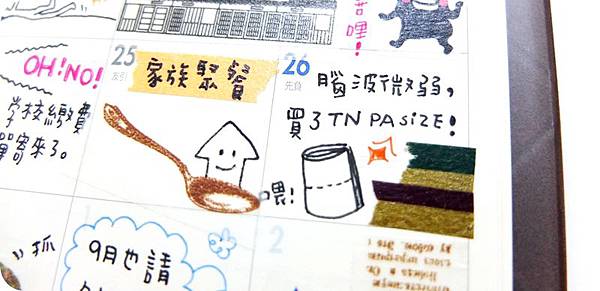 苦哩!
OH! NO!
學校繳費
單寄來了。
25
友引
家族聚餐
26
先負
腦波微弱,
買3TN PA SIZE!
喂!
1
2
抓
9月也請